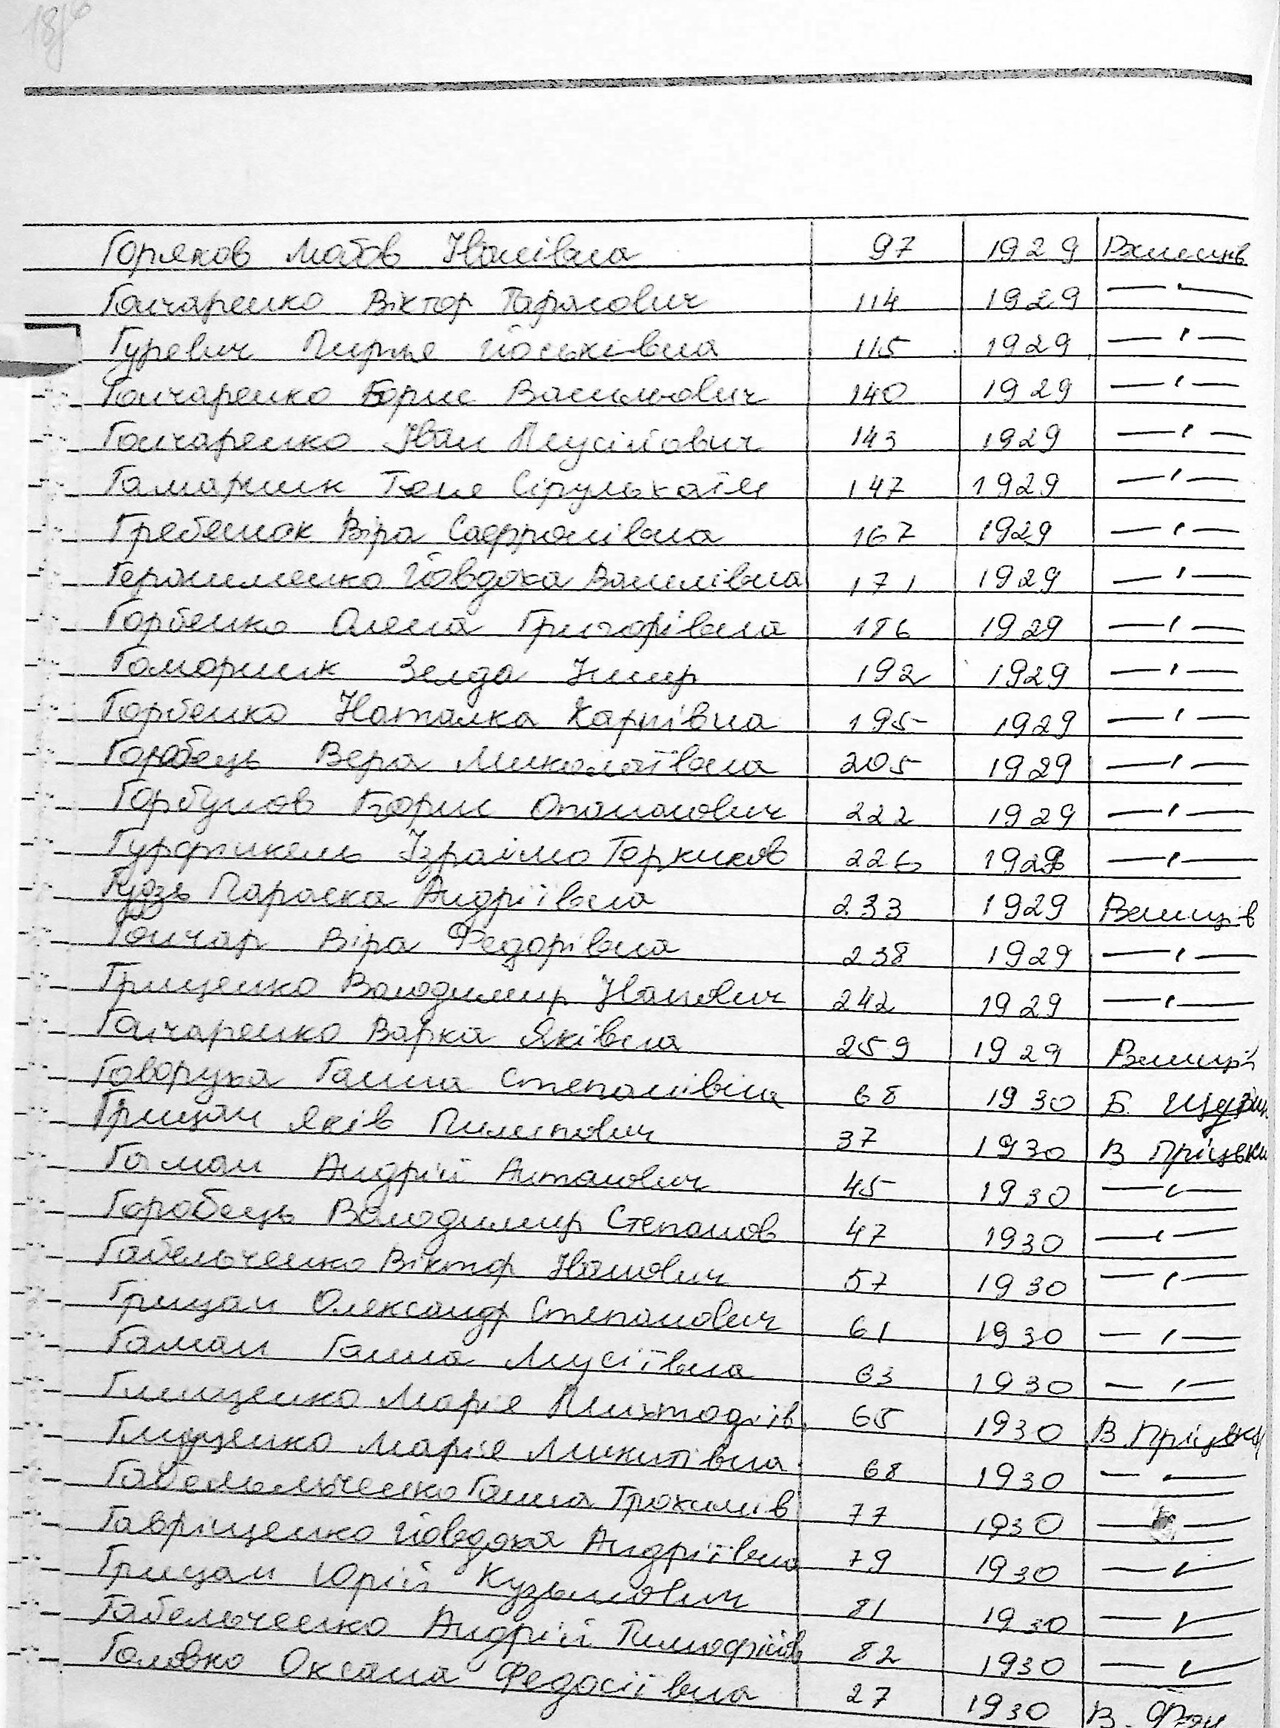 Горяков Любов Іванівна 97 1929
Гончаренко Віктор Тарасович 114 1929 —"—
Гуревич Пирля Йоськівна 115 1929 —"—
Гончаренко Борис Васильович 140 1929 —"—
Гончаренко Іван Мусійович 143 1929 —"—
Гамарник Тоня 147 1929 —"—
Гребенюк Віра Сафронівна 167 1929 —"—
Герасименко Йовдоха Василівна 171 1929 —"—
Горбенко Олена Григорівна 186 1929 —"—
Гамарник Зелда 192 1929 —"—
Горбенко Наталка Карпівна 195 1929 —"—
Горобець Вера Миколаївна 205 1929 —"—
Горбунов Борис Опанасович 222 1929 —"—
Гурфинкель 226 1929 —"—
Гудзь Параска Андріївна 233 1929 Венців
Гончар Віра Федорівна 238 1929 —"—
Гриценко Володимир Іванович 242 1929 —"—
Гончаренко Варка Яківна 259 1929
Говоруха Ганна Степанівна 68 1930 Б.
Грицан Яків Пилипович 37 1930 В Пріцвки
Гаман Андрій Антанович 45 1930 —"—
Горобець Володимир Степанов 47 1930 —"—
Габельченко Віктор Іванович 57 1930 —"—
Грицан Олександр Степанович 61 1930 —"—
Гаман Ганна Мусіївна 63 1930 —"—
Глищенко Марія 65 1930 В. Пріцвки
Глущенко Марія Микитівна 68 1930 —"—
Габельльченко Ганна Трохимів 77 1930 —"—
Гавріщенко Йовдоха Андріївна 79 1930 —"—
Грицан Юрій Кузьмович 81 1930 —"—
Габельченко Андрій Тимофійов 82 1930 —"—
Головко Оксана Федосіївна 27 1930 В.